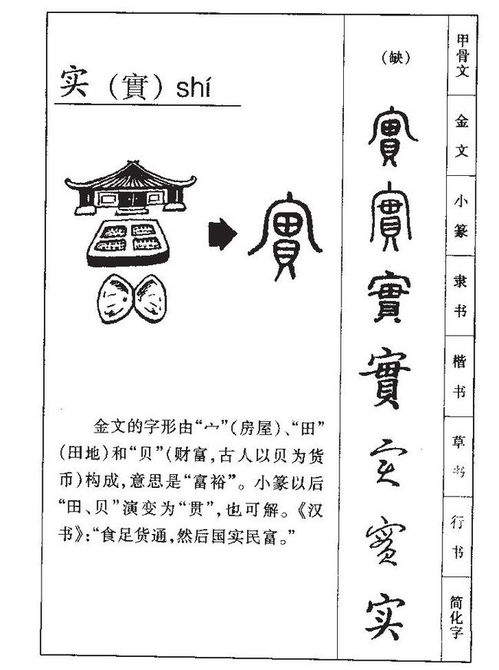 实（實）shí
金文的字形由“宀”(房屋)、“田”
(田地)和“贝”(财富，古人以贝为货
币)构成，意思是“富裕”。小篆以后
“田、贝”演变为“贯”，也可解。《汉
书》：“食足货通，然后国实民富。”
(缺)
實
實
實
實
实
實
实
甲骨文
金文
小篆
隶书
楷书
草书
行书
简化字